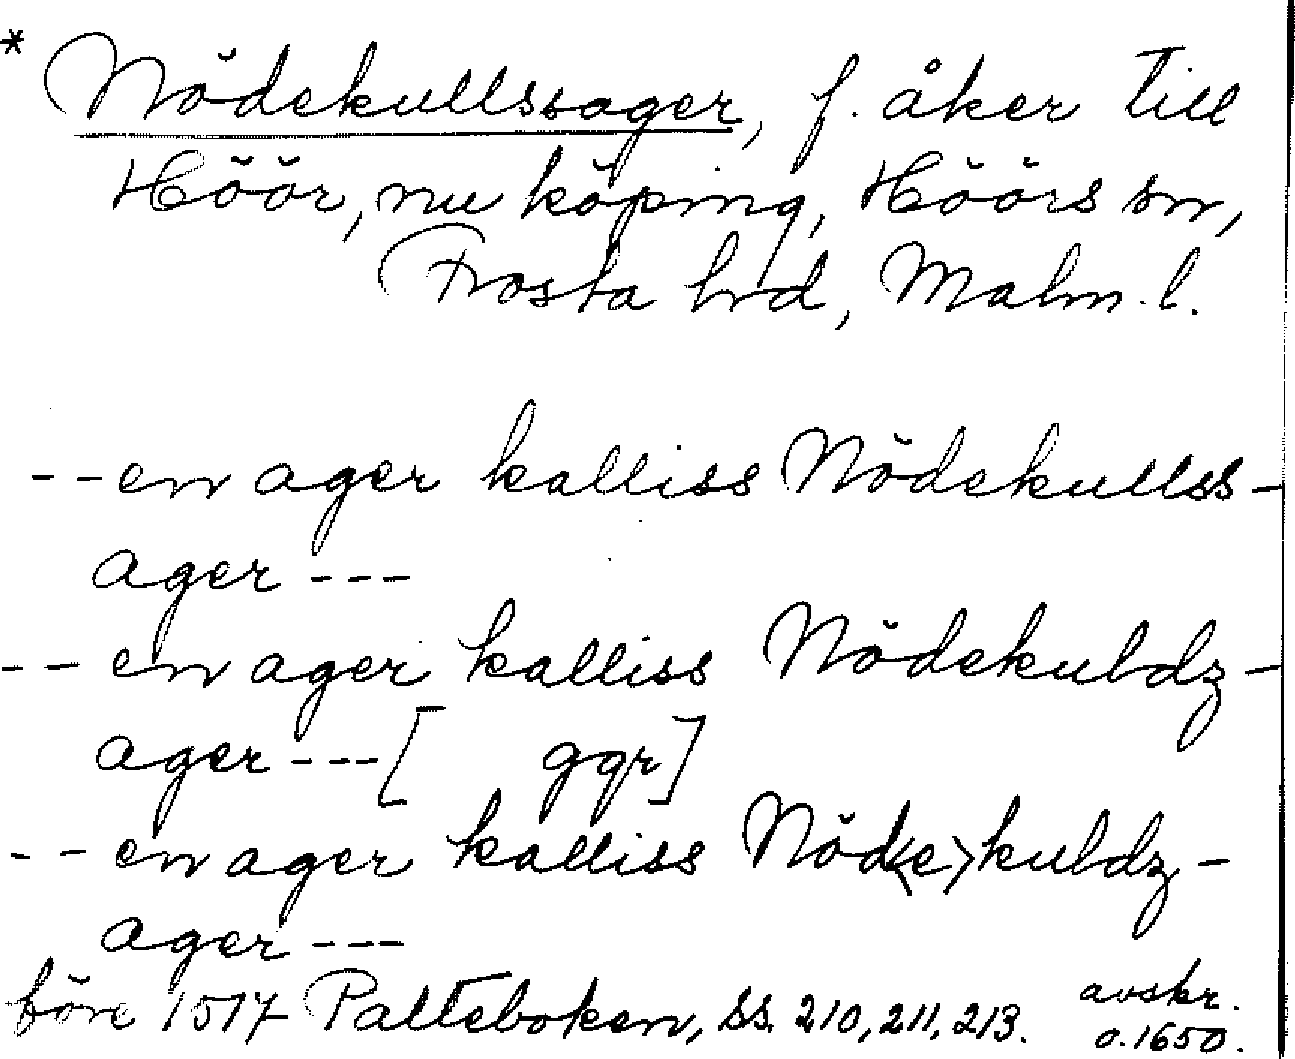 * Nödekullsager, f. åker till
Höör, nu köping, Höörs sn,
Frosta hrd, Malm. l.
-- en ager kalliss Nödekullss-
ager ---
-- en ager kalliss Nödekuldz-
ager --- [ ggr]
-- en ager kalliss Nöd<e>kuldz-
ager ---
före 1517 Palteboken, ss. 210, 211, 213. avskr.
o. 1650.